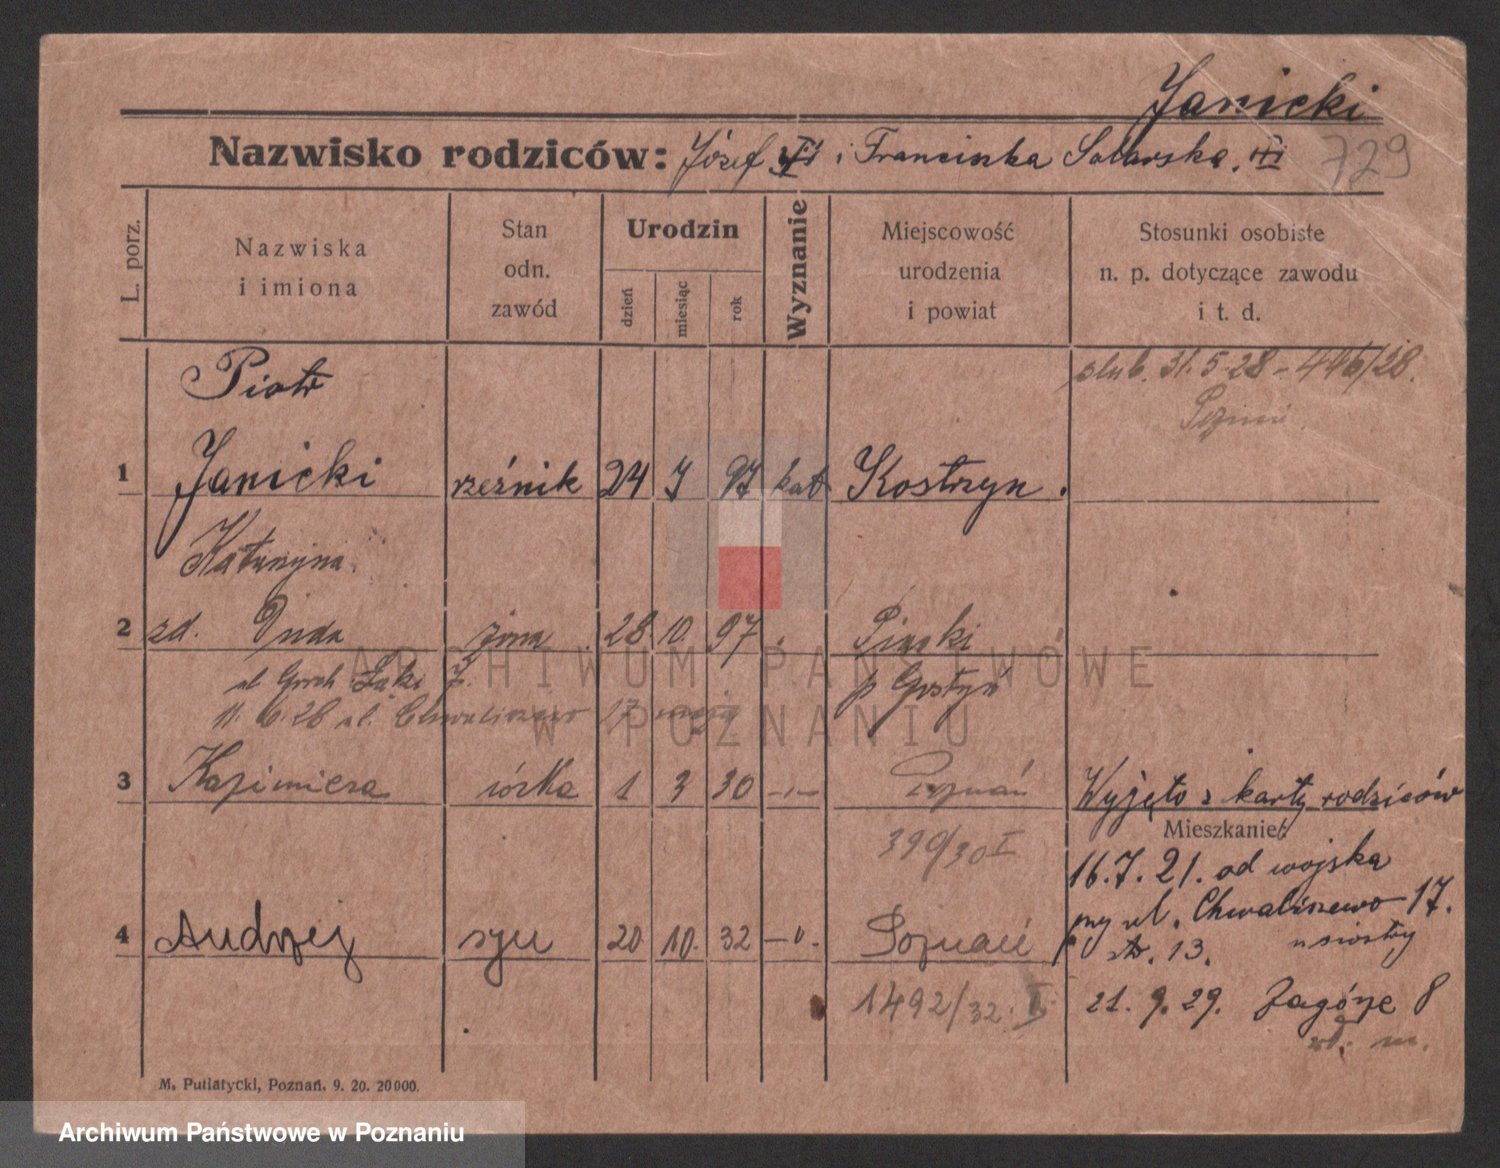 Janicki
Nazwisko rodziców: Józef i Franciszka 729
L. porz.
Nazwiska
i imiona
Stan
odn.
zawód
Urodzin
dzień
miesiąc
rok
Wyznanie
Miejscowość
urodzenia
i powiat
Stosunki osobiste
n. p. dotyczące zawodu
i t. d.
Piotr
ślub. 31.5.28 - 446/28.
1 Janicki rzeźnik 24 97 kat Kostrzyn.
Katarzyna
2 zd. Duda żona 28 10. 97 Piaski
ul Łąki 7. p Gostyń
ul. Chwaliszewo 17
3 Kazimiera córka 1 3 30 Poznań Wyjęto z karty rodziców
390/30 I
Mieszkanie:
16.7.21. od wojska
przy ul. Chwaliszewo 17.
4 Andrzej syn 20 10. 32 Poznań str. 13. u siostry
1492/32. I 21. 9. 29. Zagórze 8
M. Putiatycki, Poznań. 9. 20. 20000.
ARCHIWUM PAŃSTWOWE
W POZNANIU
Archiwum Państwowe w Poznaniu